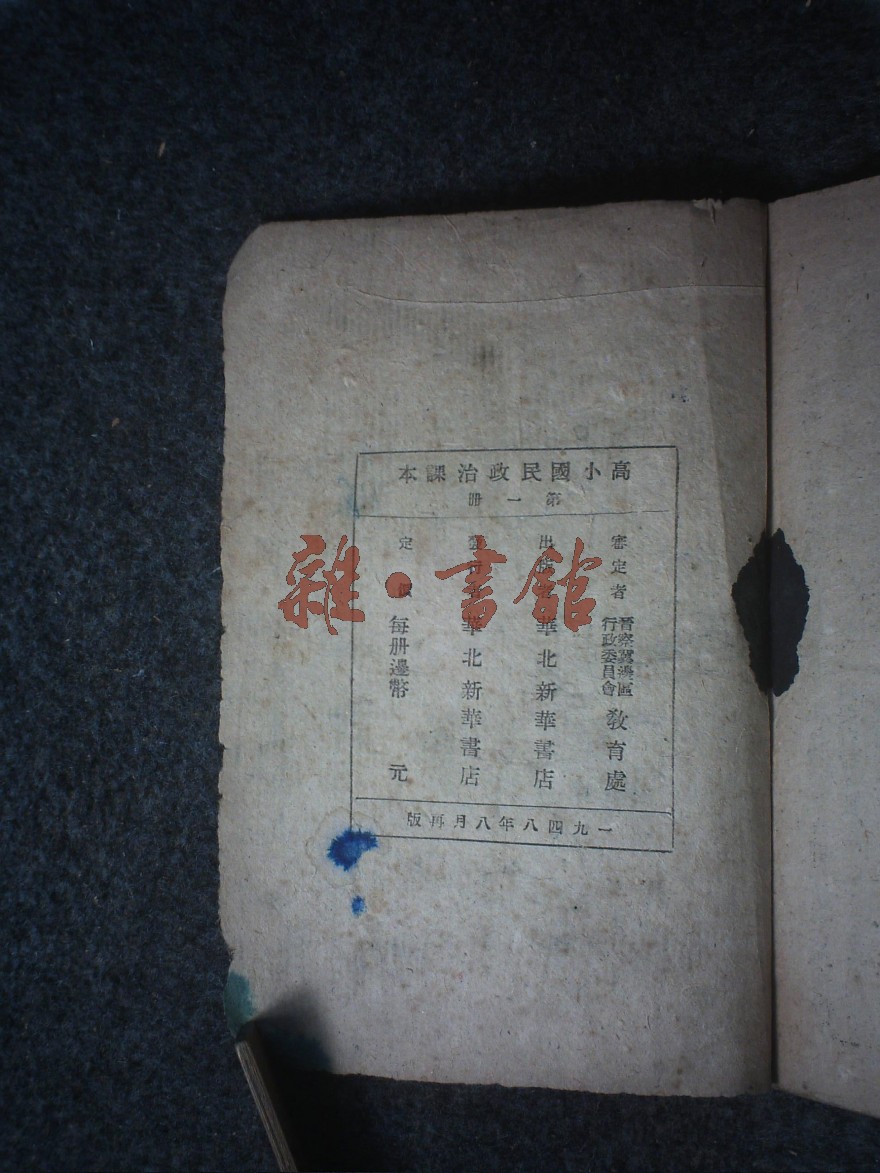 高小國民政治課本
第一册
審定者 晉察冀邊區行政委員會 教育處
出版者 華北新華書店
發行者 華北新華書店
定價 每册邊幣 元
一九四八年八月再版
雜·書館